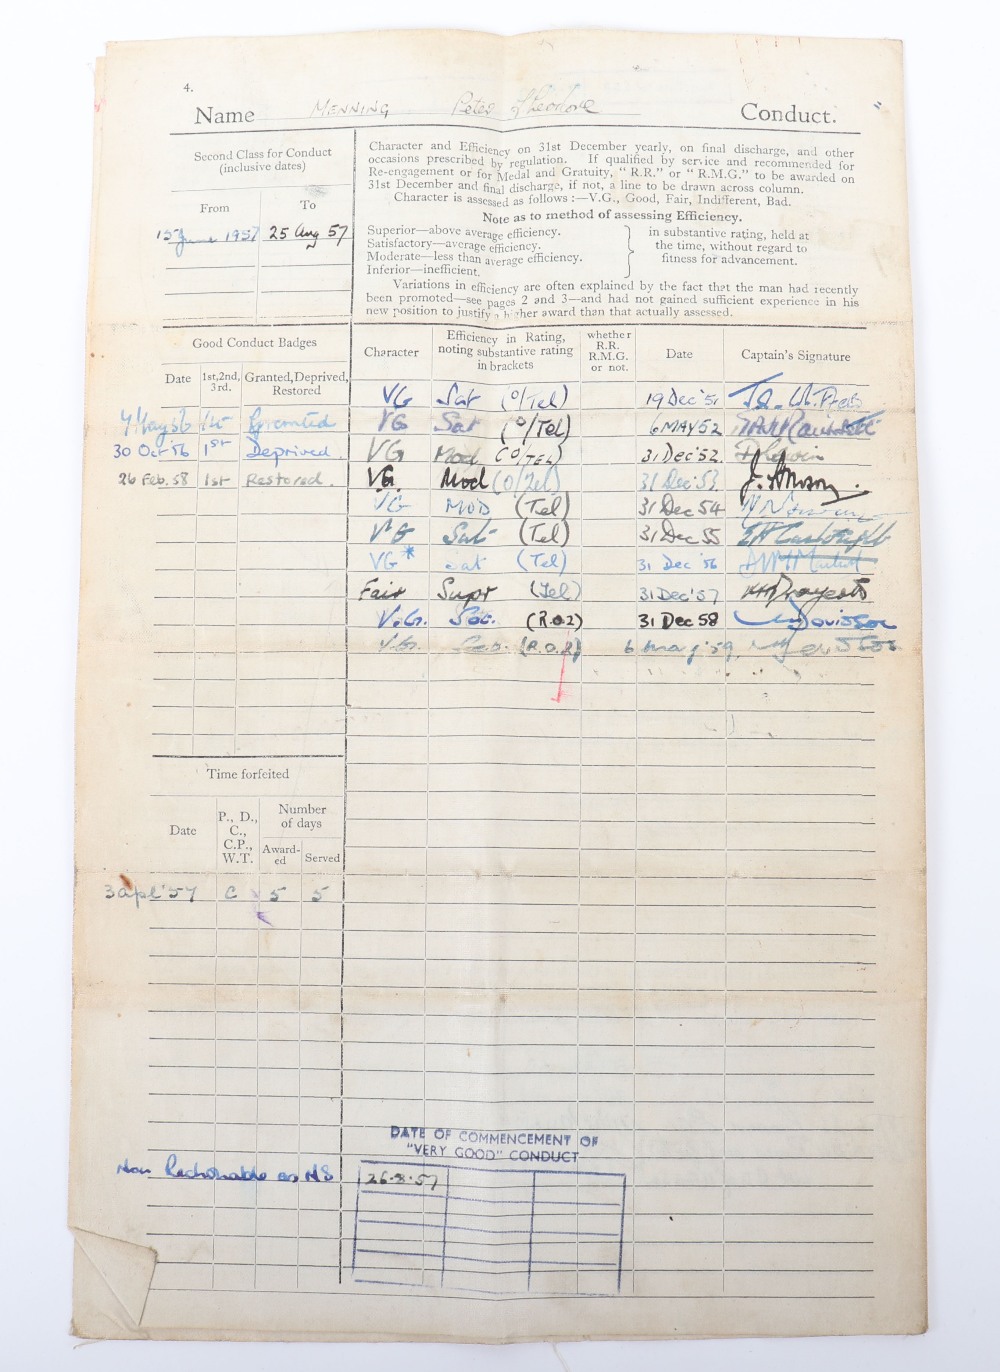 4.
Name MENNING Peter Theodore Conduct.
Second Class for Conduct
(inclusive dates)
From To
15 June 1957 25 Aug 57
Character and Efficiency on 31st December yearly, on final discharge, and other
occasions prescribed by regulation. If qualified by service and recommended for
Re-engagement or for Medal and Gratuity, “ R.R.” or “ R.M.G.” to be awarded on
31st December and final discharge, if not, a line to be drawn across column.
Character is assessed as follows :—V.G., Good, Fair, Indifferent, Bad.
Note as to method of assessing Efficiency.
Superior—above average efficiency.
Satisfactory—average efficiency.
Moderate—less than average efficiency.
Inferior—inefficient.
in substantive rating, held at
the time, without regard to
fitness for advancement.
Variations in efficiency are often explained by the fact that the man had recently
been promoted—see pages 2 and 3—and had not gained sufficient experience in his
new position to justify a higher award than that actually assessed.
Good Conduct Badges
Date 1st,2nd, 3rd. Granted,Deprived, Restored
4 May 56 1st Granted
30 Oct 56 1st Deprived.
26 Feb. 58 1st Restored.
Character Efficiency in Rating, noting substantive rating in brackets whether R.R. R.M.G. or not. Date Captain's Signature
VG Sat (O/Tel) 19 Dec '51
VG Sat (O/Tel) 6 MAY 52
VG Mod (O/TEL) 31 Dec '52.
VG. Mod (O/Tel) 31 Dec '53
VG MOD (Tel) 31 Dec 54
VG Sat (Tel) 31 Dec 55
VG* Sat (Tel) 31 Dec '56
Fair Supr (Tel) 31 Dec '57
V.G. Sat. (R.O.2) 31 Dec 58
V.G. (R.O.2) 6 May '59
Time forfeited
Date P., D., C., C.P., W.T. Number of days
Award-ed Served
3 Apl '57 C 5 5
DATE OF COMMENCEMENT OF
"VERY GOOD" CONDUCT
Non Reckonable as NS
26.8.57